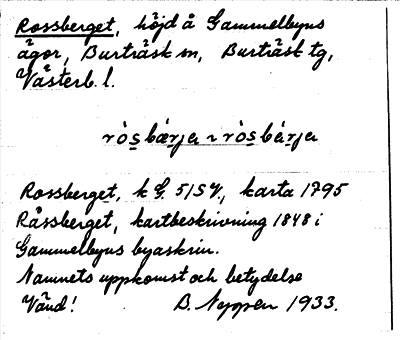 Rossberget, höjd å Gammelbyns
ägor, Burträsk sn, Burträsk tg,
Västerb. l.
ròs bærja ~ ròs bærja
Rossberget, karta 1795
Råssberget, kartbeskrivning 1848 i
Gammelbyns byaskrin.
Namnets uppkomst och betydelse
Vänd! B. Noppen 1933.